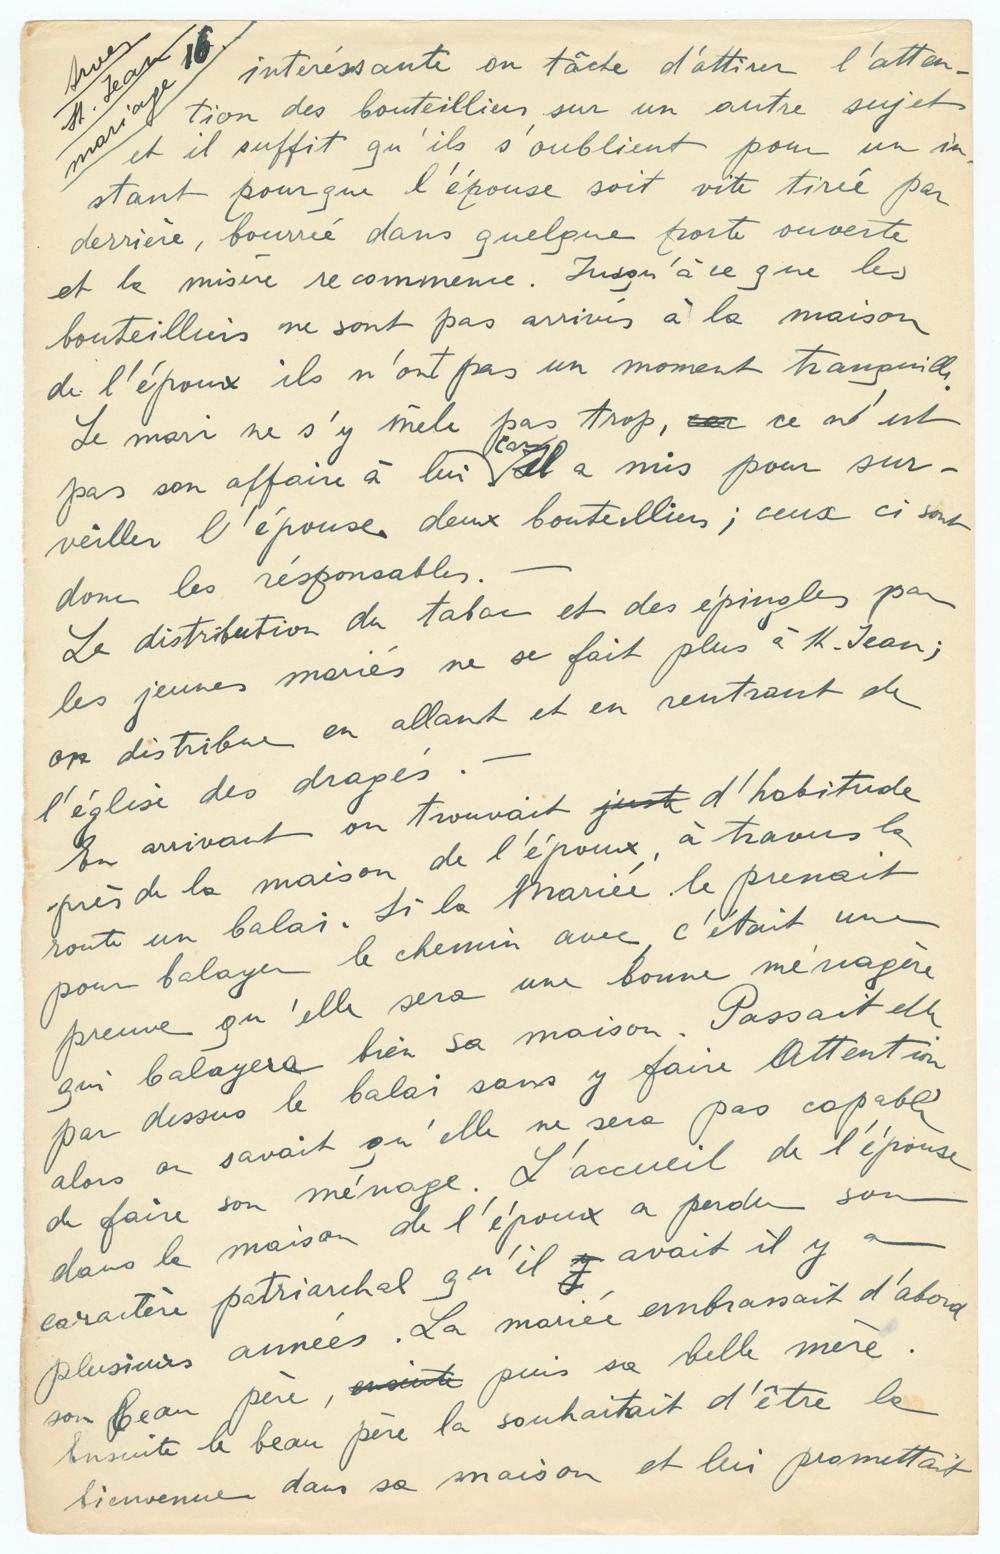 Arves
St. Jean
mariage
16
intéressante on tâche d'attirer l'atten-
tion des bouteilliers sur un autre sujet
et il suffit qu'ils s'oublient pour un in-
stant pourque l'épouse soit vite tirée par
derrière, bourrée dans quelque porte ouverte
et la misère recommence. Jusqu'à ce que les
bouteilliers ne sont pas arrivés à la maison
de l'époux ils n'ont pas un moment tranquille.
Le mari ne s'y mèle pas trop, car ce n'est
pas son affaire à lui car il a mis pour sur-
veiller l'épouse deux bouteilliers; ceux ci sont
donc les résponsables. —
La distribution du tabac et des épingles par
les jeunes mariés ne se fait plus à St. Jean;
on distribue en allant et en rentrant de
l'église des dragés. —
En arrivant on trouvait juste d'habitude
près de la maison de l'époux, à travers la
route un balai. Si la Mariée le prenait
pour balayer le chemin avec, c'était une
preuve qu'elle sera une bonne ménagère
qui balayera bien sa maison. Passait elle
par dessus le balai sans y faire Attention
alors on savait qu'elle ne sera pas capable
de faire son ménage. L'accueil de l'épouse
dans la maison de l'époux a perdu son
caractère patriarchal qu'il y avait il y a
plusieurs années. La mariée embrassait d'abord
son beau père, ensuite puis sa belle mère.
Ensuite le beau père la souhaitait d'être la
bienvenue dans sa maison et lui promettait